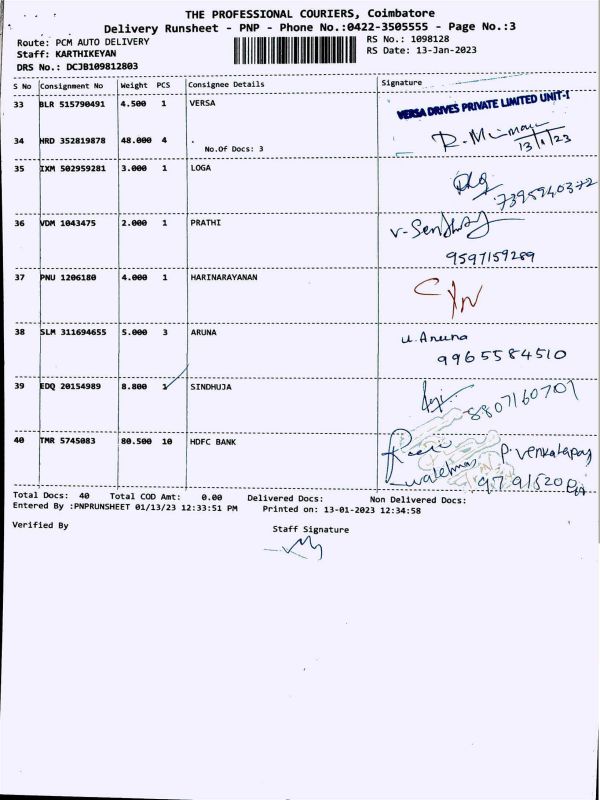 THE PROFESSIONAL COURIERS, Coimbatore
Delivery Runsheet - PNP - Phone No.:0422-3505555 - Page No.:3
Route: PCM AUTO DELIVERY
Staff: KARTHIKEYAN
DRS No.: DCJB109812803
RS No.: 1098128
RS Date: 13-Jan-2023
S No Consignment No Weight PCS Consignee Details Signature
33 BLR 515790491 4.500 1 VERSA VERSA DRIVES PRIVATE LIMITED UNIT-I
34 HRD 352819878 48.000 4 .
No.Of Docs: 3
13/1/23
35 IXM 502959281 3.000 1 LOGA
7395940372
36 VDM 1043475 2.000 1 PRATHI
9597159289
37 PNU 1206180 4.000 1 HARINARAYANAN
38 SLM 311694655 5.000 3 ARUNA u. Aruna
9965584510
39 EDQ 20154989 8.800 1 SINDHUJA
8807160701
40 TMR 5745083 80.500 10 HDFC BANK
Total Docs: 40 Total COD Amt: 0.00 Delivered Docs: Non Delivered Docs:
Entered By :PNPRUNSHEET 01/13/23 12:33:51 PM Printed on: 13-01-2023 12:34:58
Verified By Staff Signature